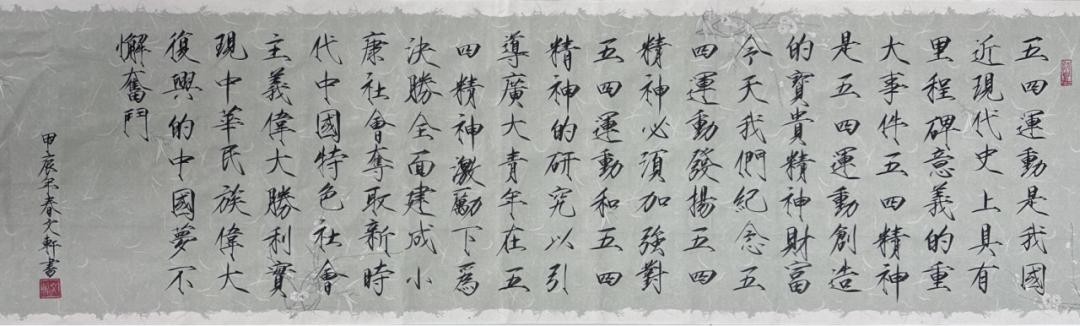 五四運動是我國
近現代史上具有
里程碑意義的重
大事件五四精神
是五四運動創造
的寶貴精神財富
今天我們紀念五
四運動發揚五四
精神必須加強對
五四運動和五四
精神的研究以引
導廣大青年在五
四精神激勵下爲
決勝全面建成小
康社會奪取新時
代中國特色社會
主義偉大勝利實
現中華民族偉大
復興的中國夢不
懈奮鬥
甲辰年春文軒書